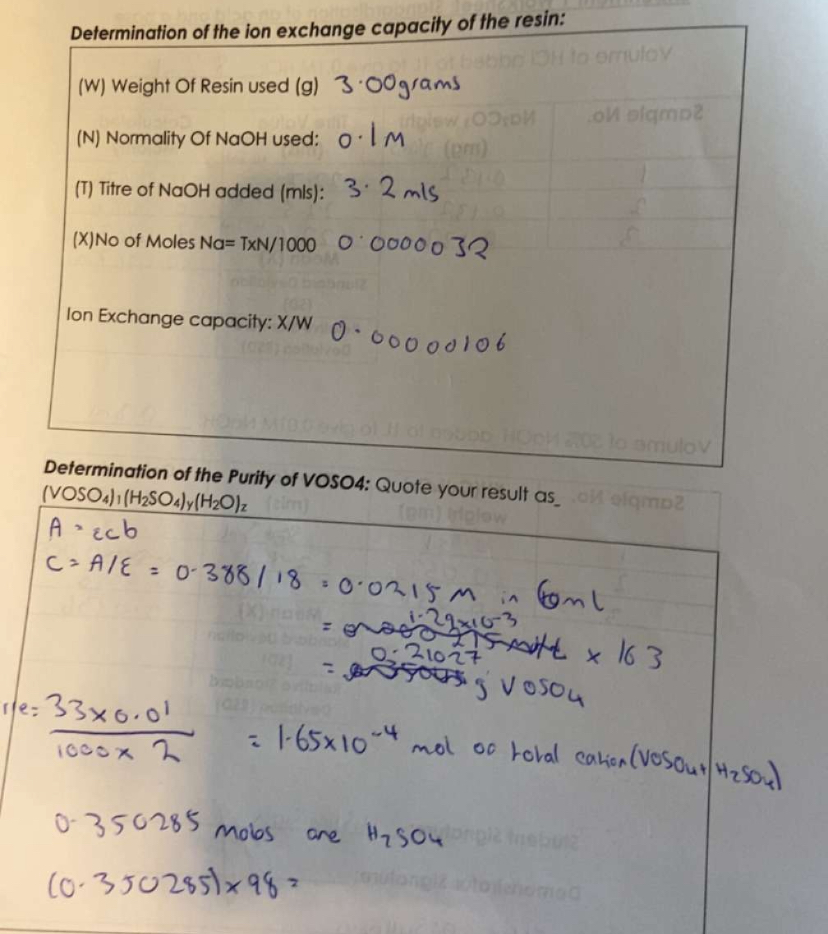 Determination of the ion exchange capacity of the resin:
(W) Weight Of Resin used (g) 3.00grams
(N) Normality Of NaOH used: 0.1M
(T) Titre of NaOH added (mls): 3.2mls
(X)No of Moles Na= TxN/1000 0.0000032
Ion Exchange capacity: X/W 0.00000106
Determination of the Purity of VOSO4: Quote your result as_
(VOSO₄)₁(H₂SO₄)y(H₂O)z
A = εcb
C = A/ε = 0.388/18 = 0.0215M in 60ml
= 1.29x10-3 x 163
= 0.21027 g VOSO4
33x0.01
1000x 2 = 1.65x10-4 mol of total cation(VOSO4+H2SO4)
0.350285 mols are H2SO4
(0.350285)x98=